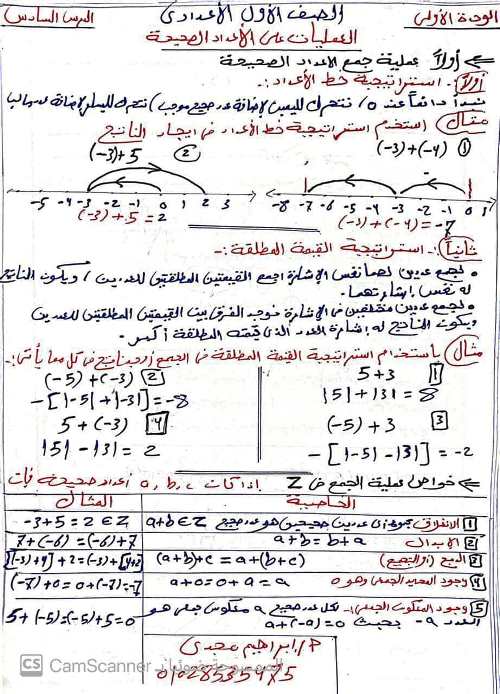 الوحدة الأولى الصف الأول الأعدادى الدرس السادس
العمليات على الأعداد الصحيحة
أولاً عملية جمع الأعداد الصحيحة
أولاً:- استراتيجية خط الأعداد:-
نبدأ دائماً عند 0, نتحرك لليمين لإضافة عدد صحيح موجب, نتحرك لليسار لإضافة
مثال استخدم استراتيجية خط الأعداد فى إيجاد الناتج
① (-3)+(-4) ② (-3)+5
-8 -7 -6 -5 -4 -3 -2 -1 0 1 -5 -4 -3 -2 -1 0 1 2 3
(-3)+(-4)=-7 (-3)+5=2
ثانياً:- استراتيجية القيمة المطلقة:-
• لجمع عددين لهما نفس الإشارة اجمع القيمتين المطلقتين للعددين, ويكون الناتج
له نفس إشارتهما.
• لجمع عددين مختلفين فى الإشارة نوجد الفرق بين القيمتين المطلقتين للعددين
ويكون الناتج له إشارة العدد الذى قيمته المطلقة أكبر.
مثال باستخدام استراتيجية القيمة المطلقة فى الجمع أوجد ناتج كل مما يأتى:-
1 5+3 2 (-5)+(-3)
|5|+|3|=8 -[|-5|+|-3|]=-8
3 (-5)+3 4 5+(-3)
-[|-5|-|3|]=-2 |5|-|-3|=2
خواص عملية الجمع فى Z إذا كانت a, b, c أعداد صحيحة فإن
الخاصية المثال
1 الانغلاق مجموع أى عددين صحيحين هو عدد صحيح a+b∈Z -3+5=2∈Z
2 الإبدال a+b=b+a 7+(-6)=(-6)+7
3 الدمج (أو التجميع) (a+b)+c=a+(b+c) [(-3)+4]+2=(-3)+[4+2]
4 وجود المحايد الجمعى وهو 0 a+0=0+a=a (-7)+0=0+(-7)=-7
5 وجود المعكوس الجمعى:- لكل عدد صحيح a معكوس جمعى هو
العدد -a بحيث a+(-a)=0 5+(-5)=(-5)+5=0
أ/ إبراهيم مجدى
CS CamScanner الممسوحة ضوئيا بـ